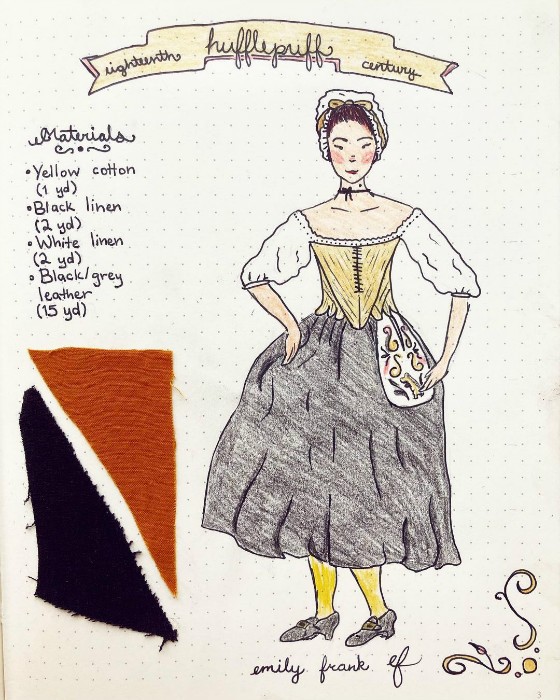 eighteenth hufflepuff century
Materials
• Yellow cotton
(1 yd)
• Black linen
(2 yd)
• White linen
(2 yd)
• Black/grey
leather
(15 yd)
emily frank ef